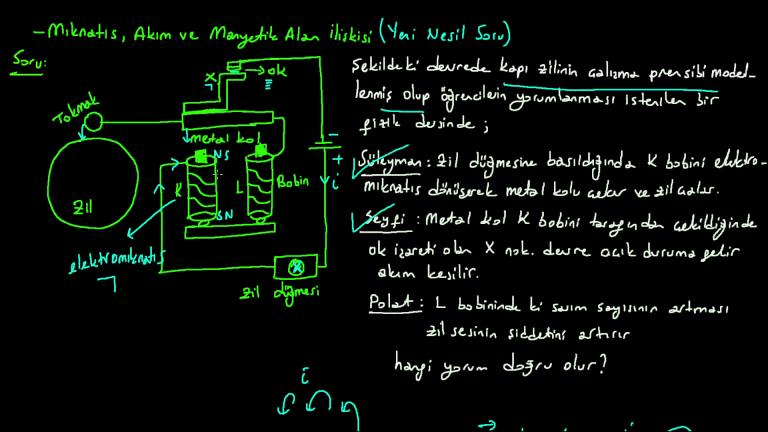 - Mıknatıs, Akım ve Manyetik Alan ilişkisi (Yeni Nesil Soru)
Soru:
x
→ ok
Tokmak
metal kol
NS
K
L
Bobin
SN
Zil
elektromıknatıs
zil düğmesi
- 
+
i
Şekildeki devrede kapı zilinin çalışma prensibi model-
lenmiş olup öğrencilerin yorumlanması istenilen bir
fizik dersinde;
Süleyman: zil düğmesine basıldığında K bobini elektro-
mıknatıs dönüşerek metal kolu çeker ve zil çalar.
Seyfi: Metal kol K bobini tarafından çekildiğinde
ok işareti olan X nok. devre açık duruma gelir
akım kesilir.
Polat: L bobininde ki sarım sayısının artması
zil sesinin şiddetini artırır
hangi yorum doğru olur?
i